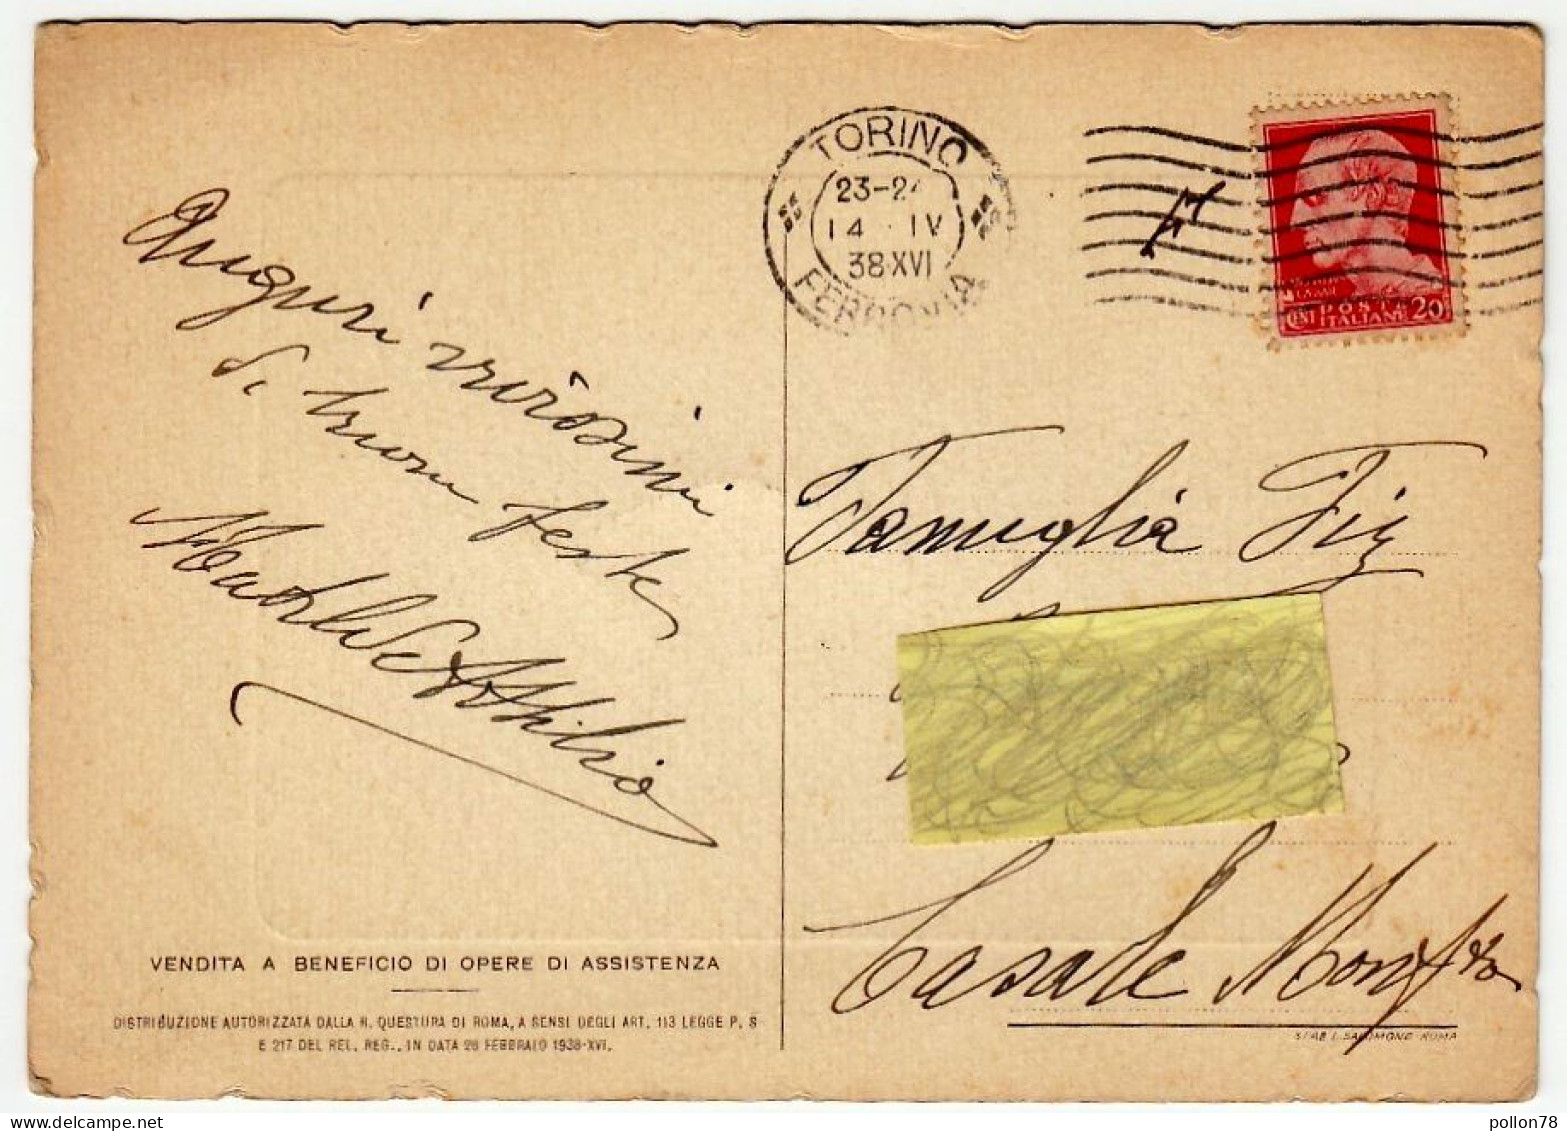 TORINO
23-24
14 · IV
38·XVI
FERROVIA
POSTE
CENT ITALIANE 20
Auguri vivissimi
di buone feste
Attilio
Famiglia
Casale Monf to
VENDITA A BENEFICIO DI OPERE DI ASSISTENZA
DISTRIBUZIONE AUTORIZZATA DALLA R. QUESTURA DI ROMA, A SENSI DEGLI ART. 113 LEGGE P. S
E 217 DEL REL. REG., IN DATA 26 FEBBRAIO 1938-XVI.
STAB. L. SALOMONE-ROMA
pollon78